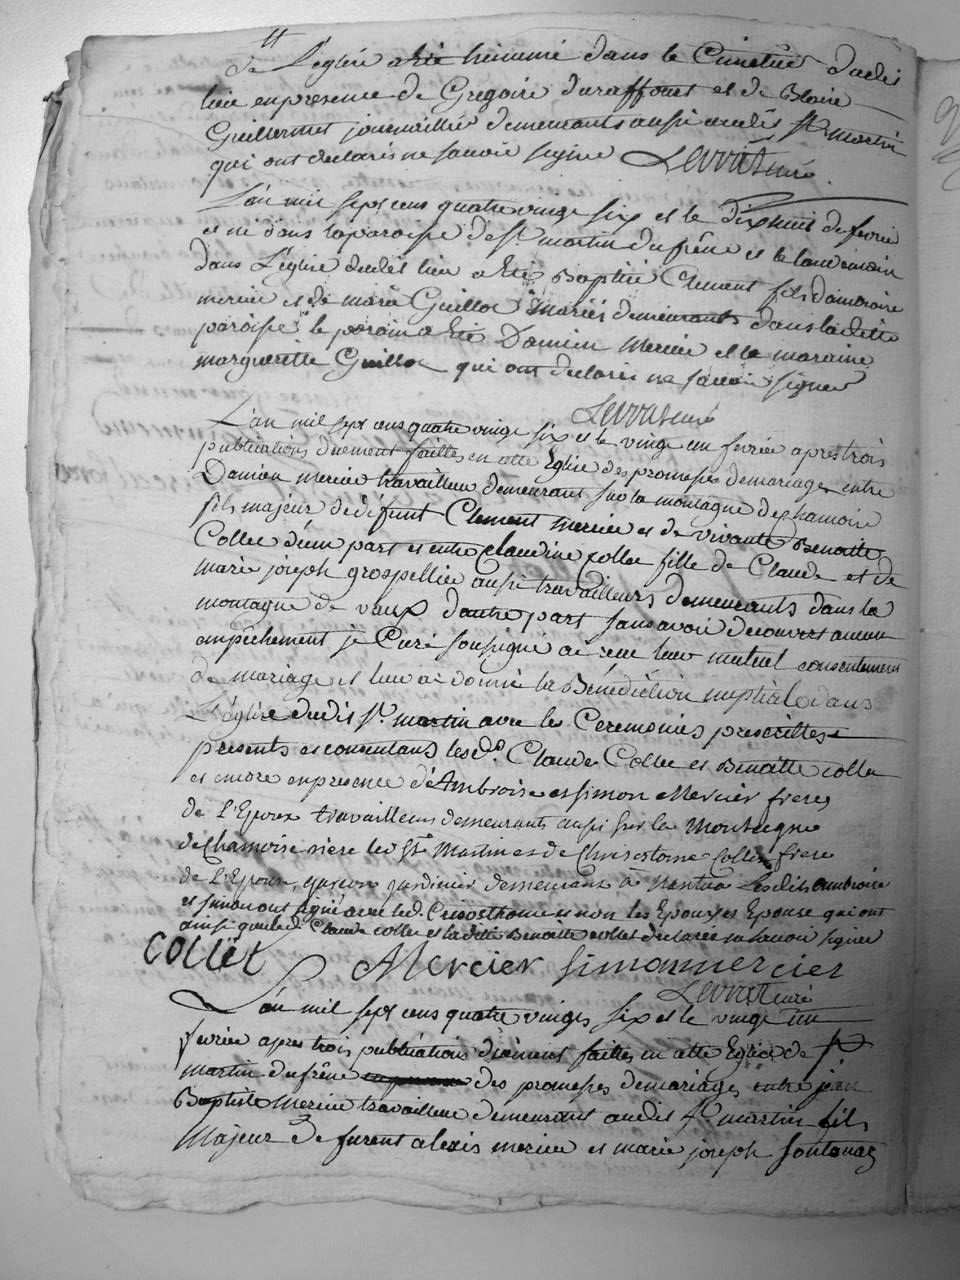 de L'église a été hinumé dans le Cimetiere dudit
lieu en presence de Gregoire duraffourt et de Blaise
Guillermet journaillier demeurants aussi audit St martin
qui ont declarés ne savoir signer Levrat curé
L'an mil sept cens quatre vingt six et le dix huit de fevrier
et né dans la paroisse de St martin du frêne et le lendemain
dans L'église dudit lieu a Eté Baptisé Clement fils d'ambroise
mercier et de marie Guillot mariés demeurants dans ladite
paroisse le parain a Eté Damien Mercier et la maraine
marguerite Guillot qui ont declarés ne savoir signer
Levrat curé
L'an mil sept cens quatre vingt six et le vingt un fevrier apres trois
publications duement faittes en cette Eglise des promesses de mariages entre
Damien mercier travailleur demeurant sur la montagne de chamoise
fils majeur de défunt Clement mercier et de vivante Benoitte
Collet d'une part et entre claudine collet fille de Claude et de
marie joseph grospellier aussi travailleurs demeurants dans la
montagne de vaux d'autre part sans avoir decouvert aucun
empêchement je Curé soussigné ai reçu leur mutuel consentement
de mariage et leur ai donné la Bénédiction nuptiale dans
L'église dudit St martin avec les Ceremonies prescrittes
presents et consentans lesd. Claude Collet et Benoitte collet
et encore en presence d'Ambroise et simon Mercier freres
de L'Epoux travailleurs demeurants aussi sur la Montagne
de chamoise riere led St Martin et de Chrisostome Collet frere
de L'Epouse, garçon jardinier demeurant à nantua Lesdits ambroise
et simon ont signé avec led. Crisosthome et non les Epoux et Epouse qui ont
ainsi que led. Claude collet et ladite Benoitte collet declarés ne savoir signer
COLLET A Mercier simon mercier
Levrat curé
L'an mil sept cens quatre vingts six et le vingt un
fevrier apres trois publications duement faittes en cette Eglise de St
martin du frêne des promesses de mariages entre jean
Baptiste Mercier travailleur demeurant audit St martin fils
Majeur de furent alexis mercier et marie joseph fontanas